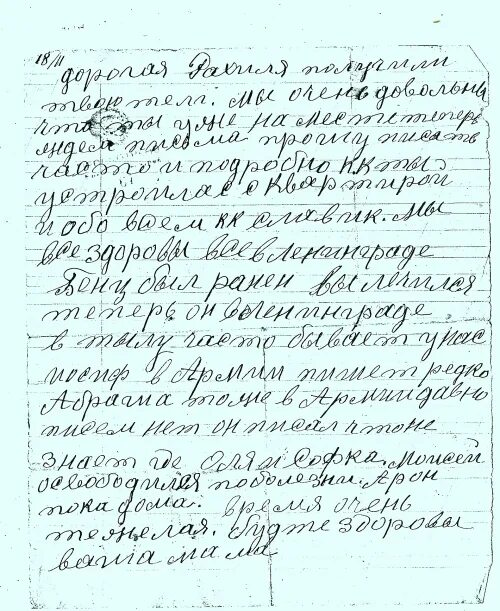 18/11
дорогая Рахиля получили
твою телг. мы очень довольны
что ты уже на месте теперь
ждем письма прошу писать
часто и подробно кк ты
устроилас с квартирой
и обо всем кк славик. мы
все здоровы все в Ленинграде
Бену был ранен вылечился
теперь он в Ленинграде
в тылу часто бывает у нас
иосиф в Армии пишет редко
Абраша тоже в Армии давно
писем нет он писал что не
знает где Оля и Софка. Моисей
освободился по болезни. Арон
пока дома. время очень
тежелая. будте здоровы
ваша мама